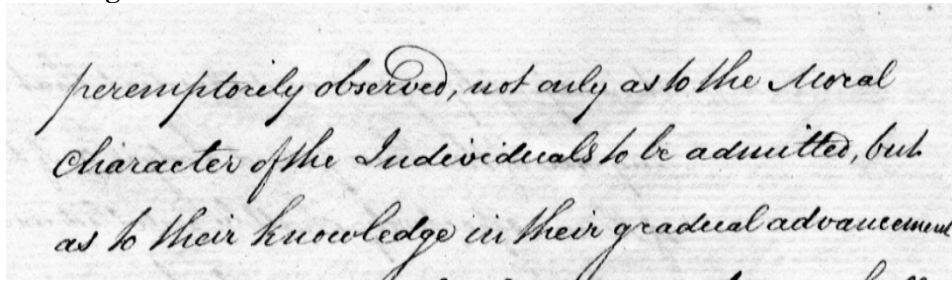 peremptorily observed, not only as to the Moral
Character of the Individuals to be admitted, but
as to their knowledge in their gradual advancement